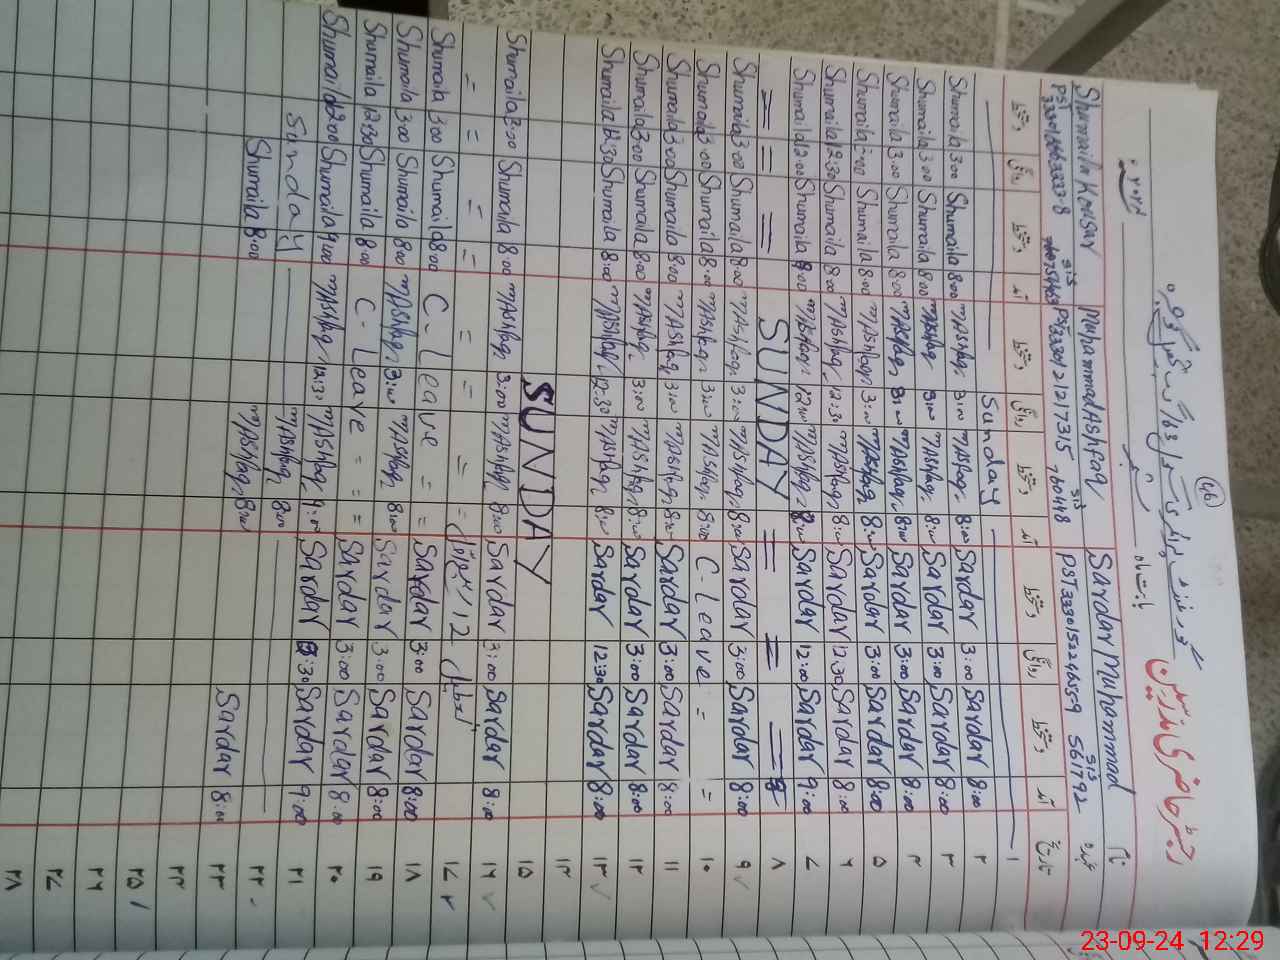 46
رجسٹر حاضری مدرسین
نام Sardar Muhammad Muhammad Ashfaq Shumaila Kousar
عہدہ PST SIS 561792 PST SIS 76048 PST SIS
تاریخ آمد دستخط روانگی دستخط آمد دستخط روانگی دستخط آمد دستخط روانگی دستخط
۱ Sunday
۲ 8:00 Sardar 3:00 Sardar 8:00 M Ashfaq 3:00 M Ashfaq 8:00 Shumaila 3:00 Shumaila
۳ 8:00 Sardar 3:00 Sardar 8:00 M Ashfaq 3:00 M Ashfaq 8:00 Shumaila 3:00 Shumaila
۴ 8:00 Sardar 3:00 Sardar 8:00 M Ashfaq 3:00 M Ashfaq 8:00 Shumaila 3:00 Shumaila
۵ 8:00 Sardar 3:00 Sardar 8:00 M Ashfaq 3:00 M Ashfaq 8:00 Shumaila Shumaila
۶ 8:00 Sardar 12:30 Sardar 8:00 M Ashfaq 12:30 M Ashfaq 8:00 Shumaila 12:30 Shumaila
۷ 9:00 Sardar 12:00 Sardar M Ashfaq 12:00 M Ashfaq Shumaila 12:00 Shumaila
۸ = = = SUNDAY = = =
۹ 8:00 Sardar 3:00 Sardar 8:00 M Ashfaq 3:00 M Ashfaq 8:00 Shumaila 3:00 Shumaila
۱۰ = = C-Leave 8:00 M Ashfaq 3:00 M Ashfaq 8:00 Shumaila 3:00 Shumaila
۱۱ 8:00 Sardar 3:00 Sardar 8:00 M Ashfaq 3:00 M Ashfaq 8:00 Shumaila 3:00 Shumaila
۱۲ 8:00 Sardar 3:00 Sardar 8:00 M Ashfaq 3:00 M Ashfaq 8:00 Shumaila 3:00 Shumaila
۱۳ 8:00 Sardar 12:30 Sardar 8:00 M Ashfaq 12:30 M Ashfaq 8:00 Shumaila 12:30 Shumaila
۱۴
۱۵ SUNDAY
۱۶ 8:00 Sardar 3:00 Sardar 8:00 M Ashfaq 3:00 M Ashfaq 8:00 Shumaila 3:00 Shumaila
۱۷ تعطیل 12 ربیع الاول = = = = = =
۱۸ 8:00 Sardar 3:00 Sardar = = C-Leave 8:00 Shumaila 3:00 Shumaila
۱۹ 8:00 Sardar 3:00 Sardar 8:00 M Ashfaq 3:00 M Ashfaq 8:00 Shumaila 3:00 Shumaila
۲۰ 8:00 Sardar 3:00 Sardar = = C-Leave 8:00 Shumaila 12:30 Shumaila
۲۱ 9:00 Sardar Sardar 9:00 M Ashfaq 12:30 M Ashfaq 9:00 Shumaila 12:00 Shumaila
۲۲ 8:00 M Ashfaq Sunday
۲۳ 8:00 Sardar 8:00 M Ashfaq 8:00 Shumaila
۲۴
۲۵
۲۶
۲۷
۲۸
23-09-24 12:29